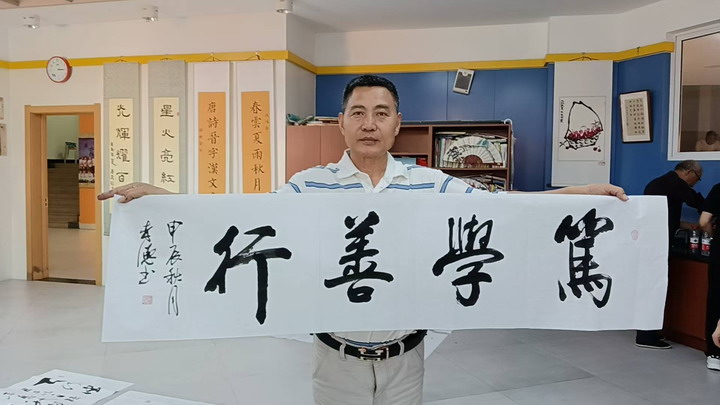 篤學善行
甲辰秋月
德书
春雲夏雨秋月
唐詩晉字漢文
星火亮紅
光輝耀百